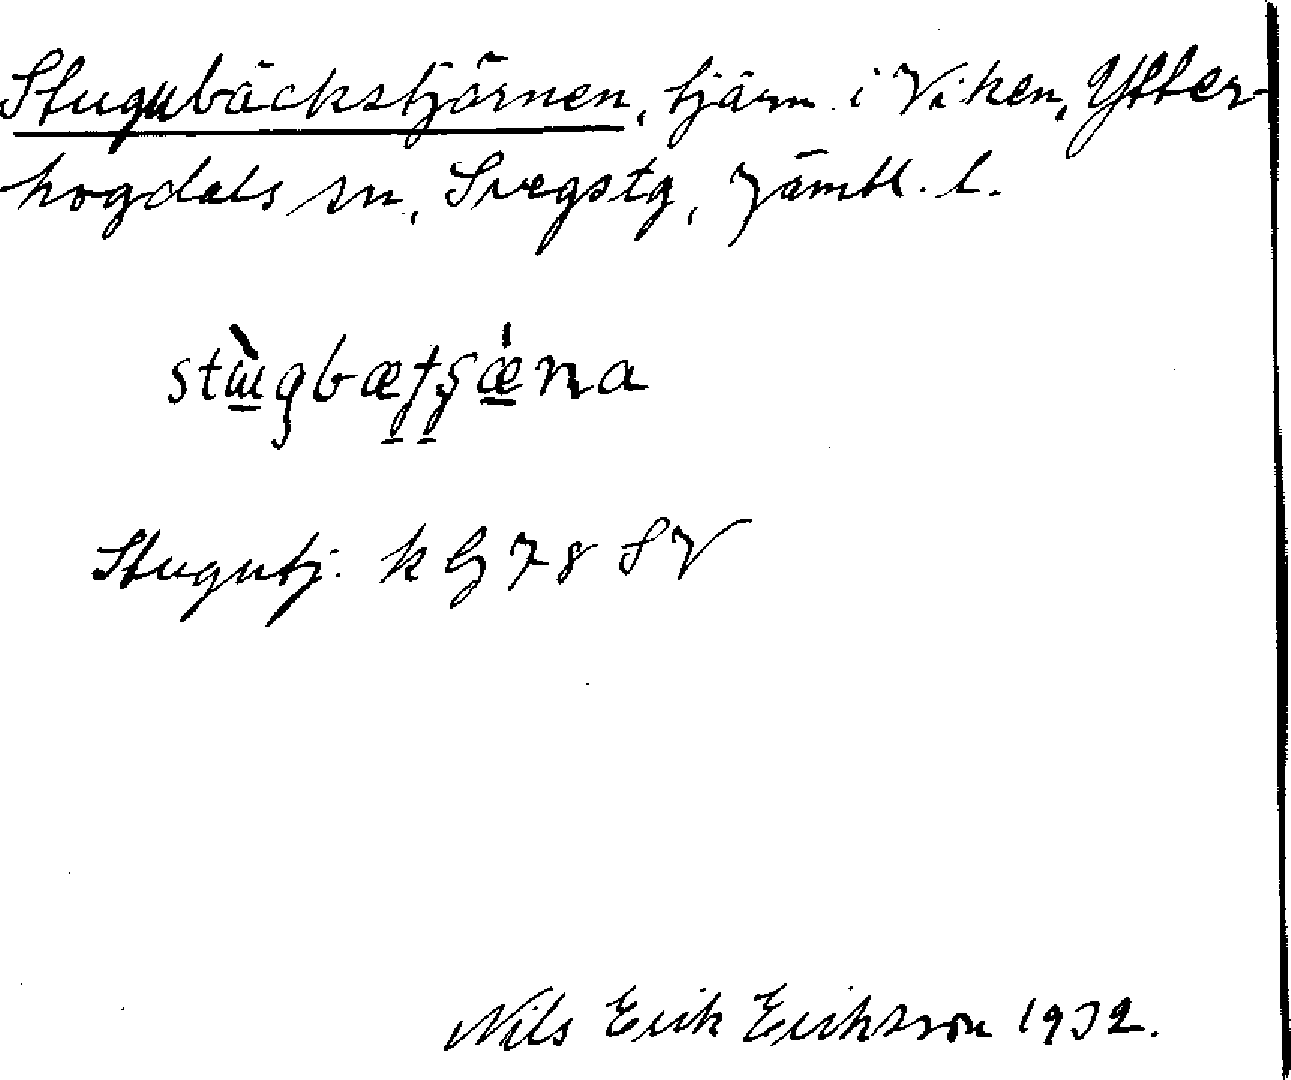 Stugubäckstjärnen, tjärn i Viken, Ytter-
hogdals sn, Svegs tg, Jämtl. l.
stɯ̀gbæʈʂǽna
Stugutj. k G 78 SV
Nils Erik Eriksson 1932.